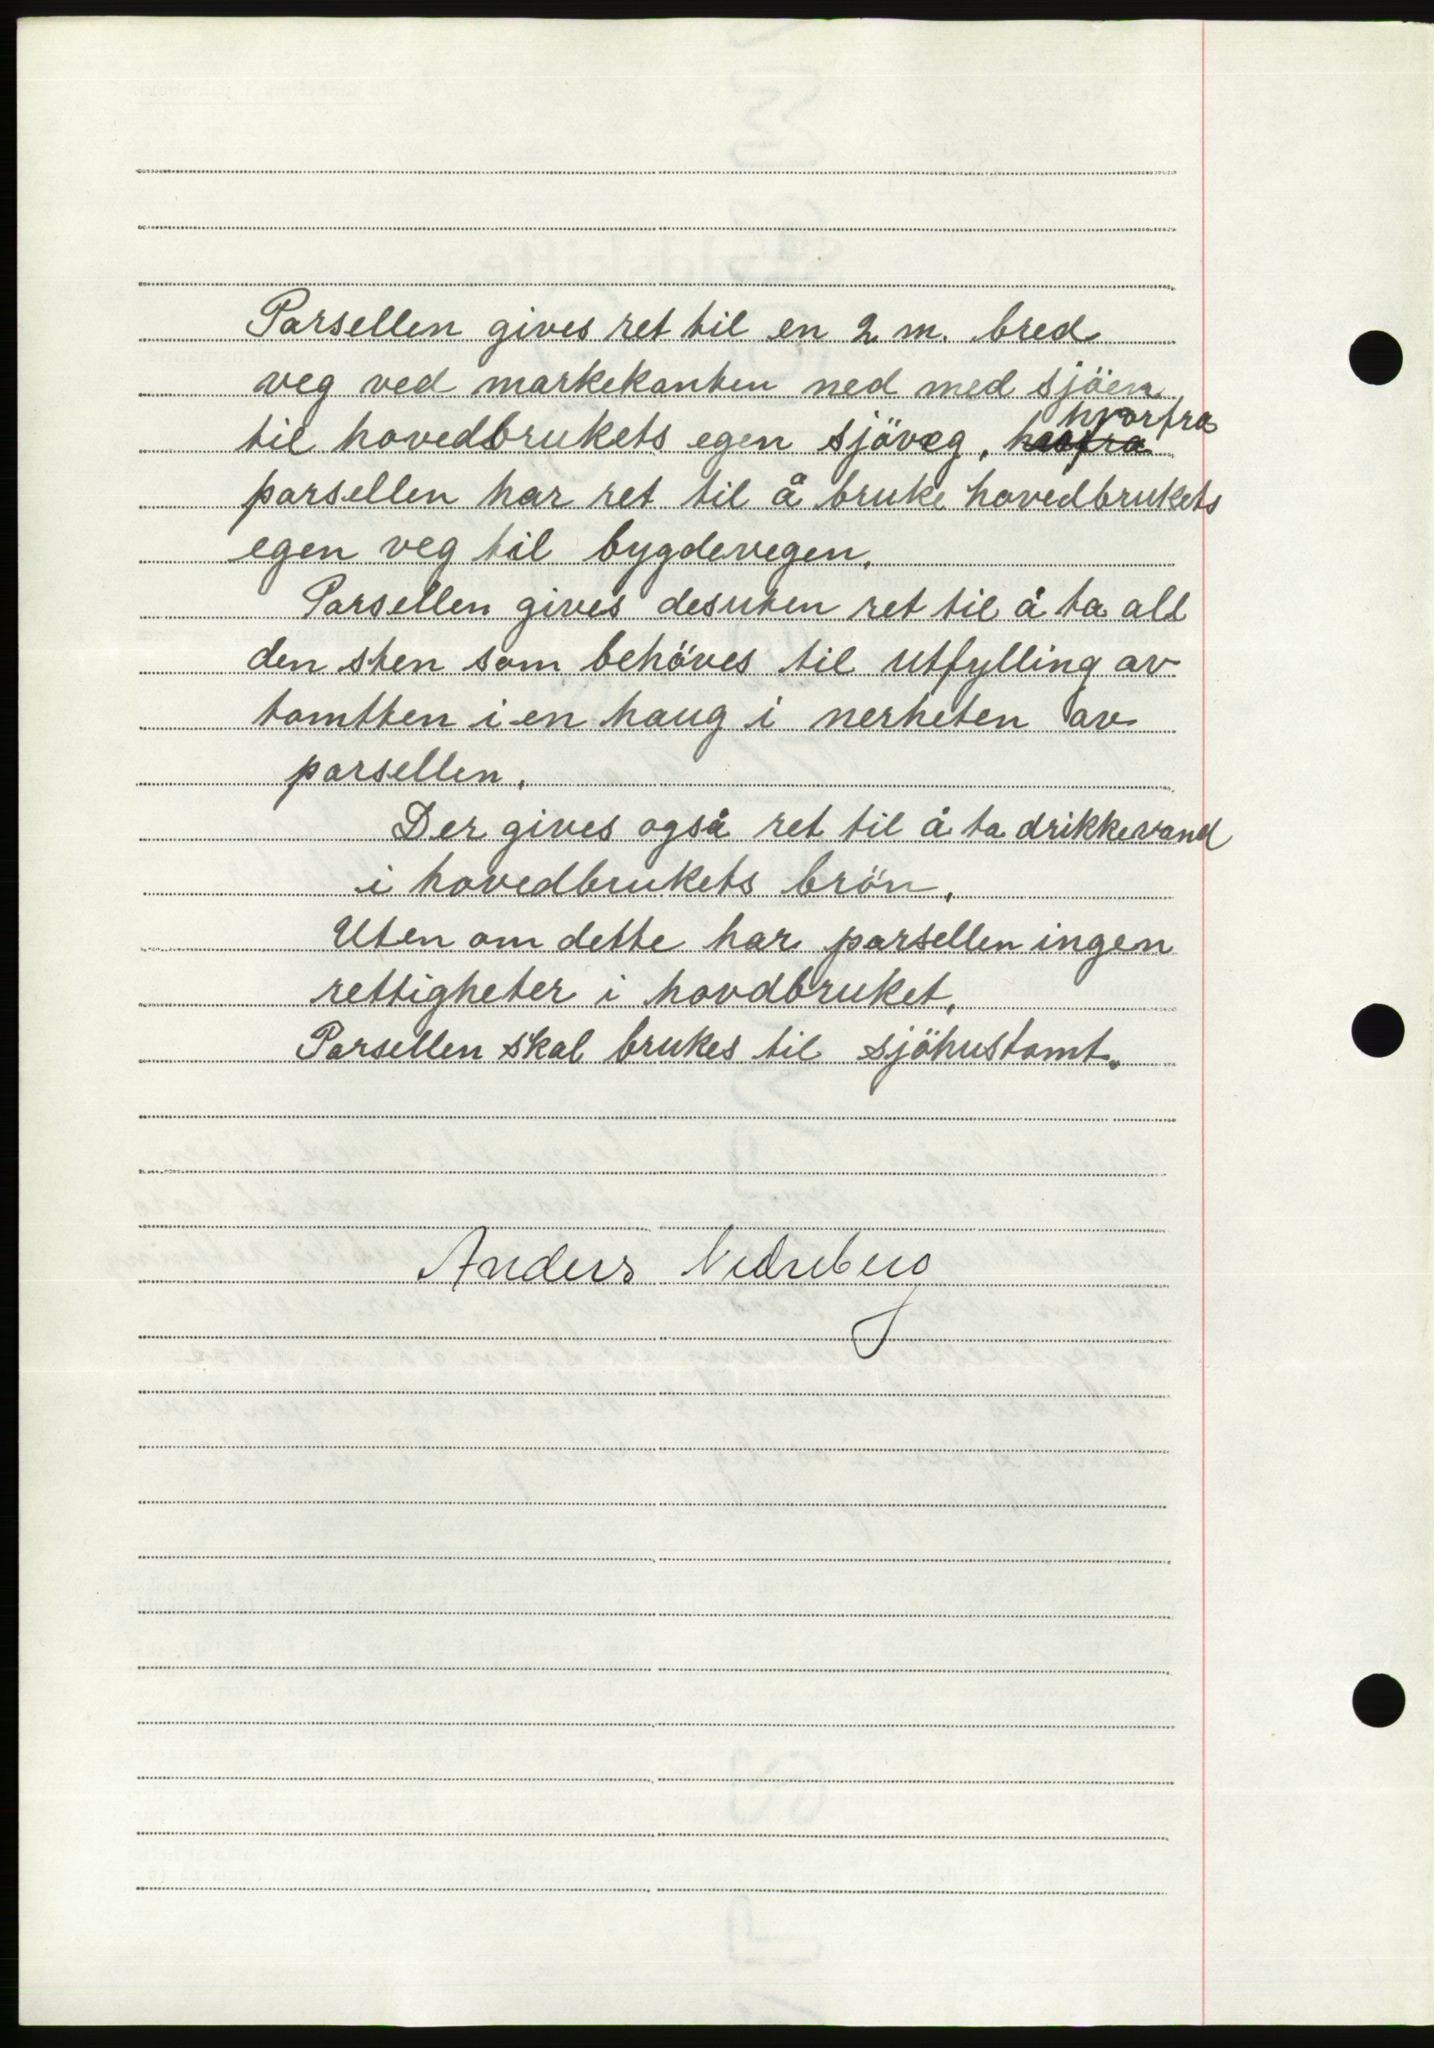 Parsellen gives ret til en 2 m. bred
veg ved markekanten ned med sjöen
til hovedbrukets egen sjöveg, hvorfra
parsellen har ret til å bruke hovedbrukets
egen veg til bygdevegen.
Parsellen gives desuten ret til å ta alt
den sten som behöves til utfylling av
tomtten i en haug i nerheten av
parsellen.
Der gives også ret til å ta drikkevand
i hovedbrukets brön.
Uten om dette har parsellen ingen
rettigheter i hovdbruket.
Parsellen skal brukes til sjöhustomt.
Anders Nedreberg